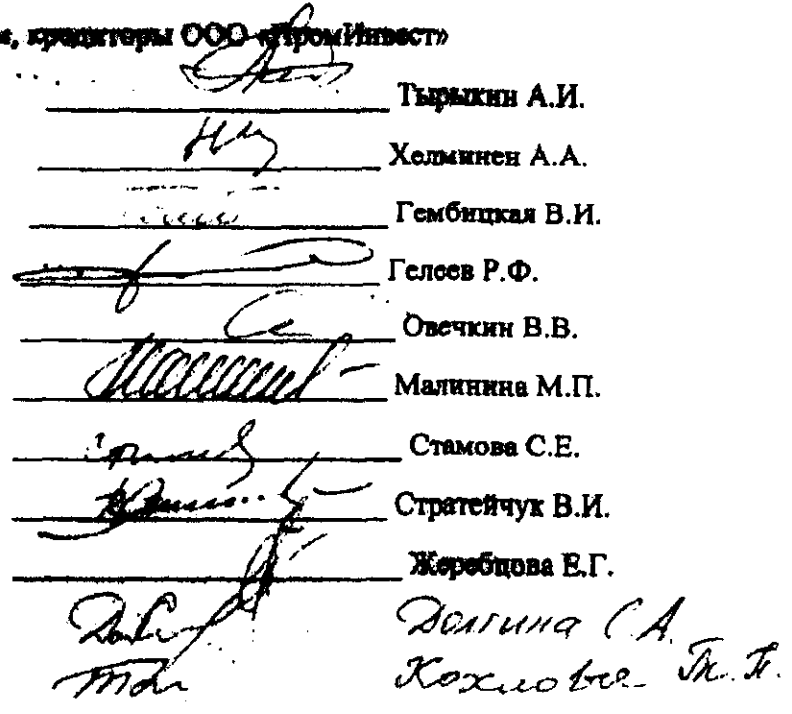 кредиторы ООО «ПромИнвест»
Тырыкин А.И.
Хелминен А.А.
Гембицкая В.И.
Гелеев Р.Ф.
Овечкин В.В.
Малинина М.П.
Стамова С.Е.
Стратейчук В.И.
Жеребцова Е.Г.
Долгина С.А.